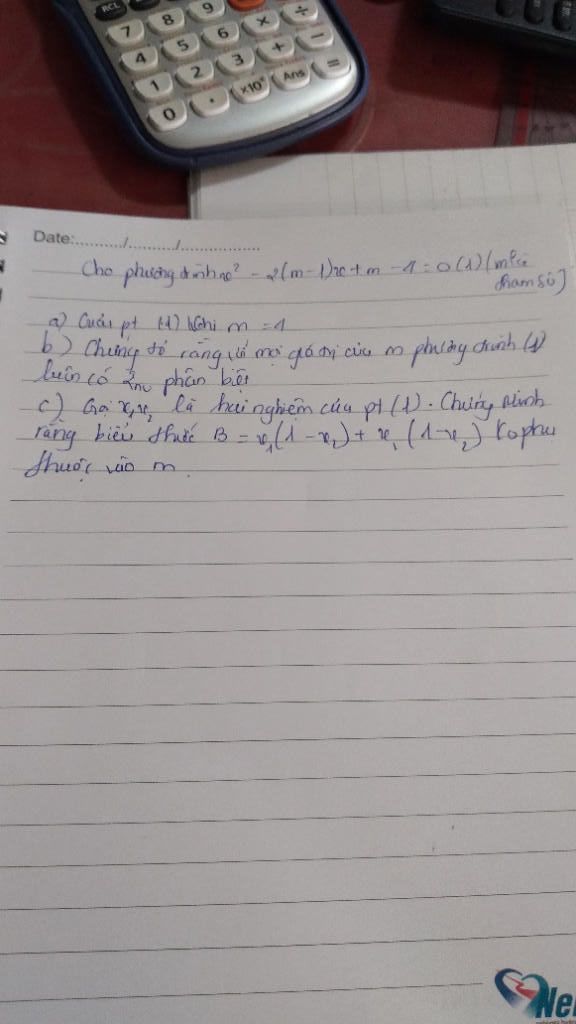 RCL
7 8 9 × ÷
4 5 6 + −
1 2 3 =
0 . ×10ˣ Ans
Date:........../........../.................
Cho phương trình x² - 2(m-1)x + m - 1 = 0 (1) (m là
tham số)
a) Giải pt (1) khi m = 1
b) Chứng tỏ rằng với mọi giá trị của m phương trình (1)
luôn có 2 no phân biệt
c) Gọi x₁x₂ là hai nghiệm của pt (1). Chứng minh
rằng biểu thức B = x₁(1-x₂) + x₁(1-x₂) ko phụ
thuộc vào m.